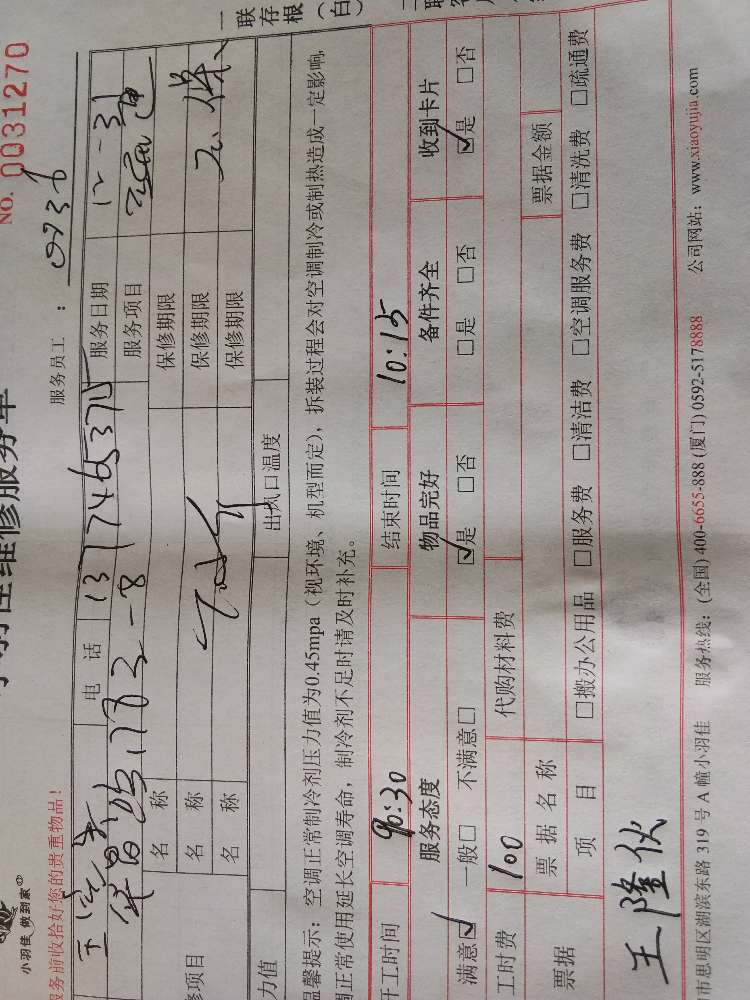 小羽佳 做到家
一联存根（白）
NO. 0031270
服务前收拾好您的贵重物品！
服务员工：
电话 服务日期 12-31
服务项目
名称 保修期限
名称 保修期限
名称 保修期限
修项目
力值 出热口温度
温馨提示：空调正常制冷剂压力值为0.45mpa（视环境、机型而定），拆装过程会对空调制冷或制热造成一定影响，
调正常使用延长空调寿命，制冷剂不足时请及时补充。
开工时间 结束时间 10:15
服务态度 物品完好 备件齐全 收到卡片
满意☑ 一般□ 不满意□ ☑是 □否 □是 □否 ☑是 □否
工时费 100 代购材料费
票据 票据名称 票据金额
项目 □搬办公用品 □服务费 □清洁费 □空调服务费 □清洗费 □疏通费
王隆伙
市思明区湖滨东路 319 号 A 幢小羽佳 服务热线：(全国) 400-6655-888 (厦门) 0592-5178888 公司网站：www.xiaoyujia.com